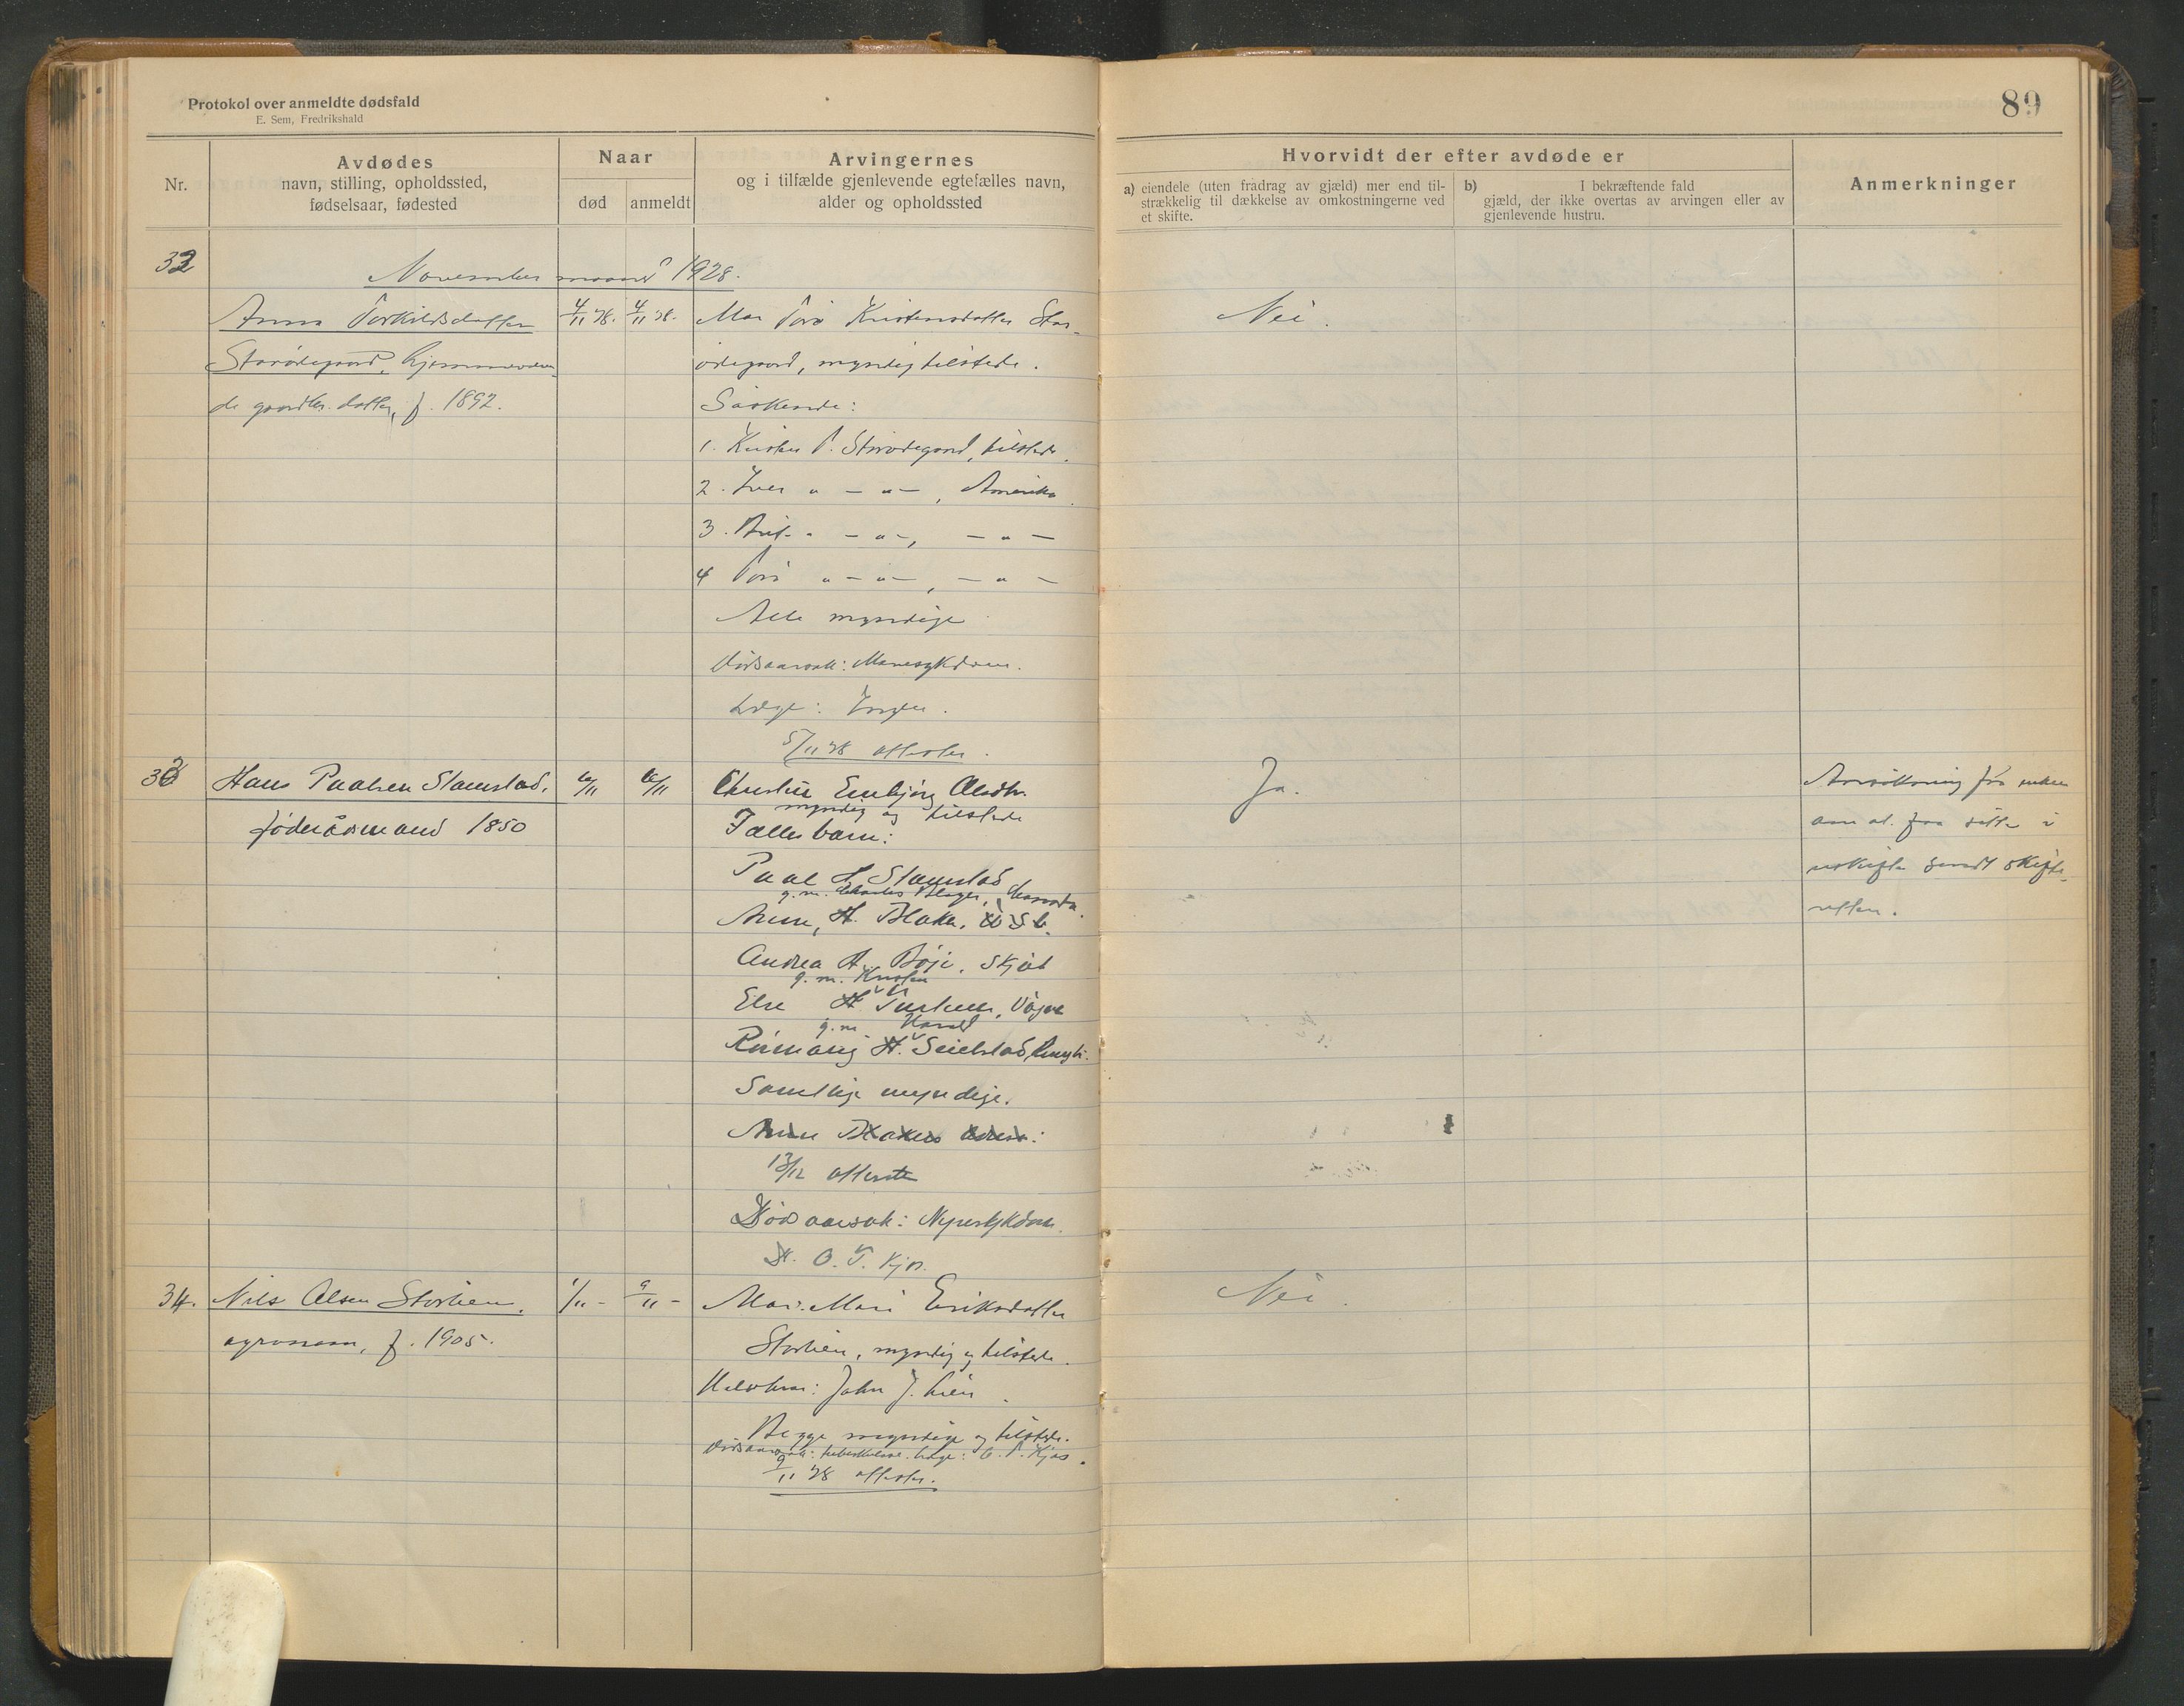 Protokol over anmeldte dødsfald
E. Sem, Fredrikshald
89
Nr.
Avdødes
navn, stilling, opholdssted,
fødselsaar, fødested
Naar
død
anmeldt
Arvingernes
og i tilfælde gjenlevende egtefælles navn,
alder og opholdssted
Hvorvidt der efter avdøde er
a) eiendele (uten fradrag av gjæld) mer end til-
strækkelig til dækkelse av omkostningerne ved
et skifte.
b) I bekræftende fald
gjæld, der ikke overtas av arvingen eller av
gjenlevende hustru.
Anmerkninger
32
November maaned 1928.
Anna Torkildsdatter
Storødegaard, hjemmeværen-
de gaardbr. datter, f. 1892.
4/11 28. 4/11 28.
Mor Torø Kristensdatter Stor-
ødegaard, myndig tilstede.
Søskende:
1. Kristen T. Storødegaard, tilstede.
2. Iver " — " —, Amerika
3. Brit " — " —, — " —
4 Torø " — " —, — " —
Alle myndige
Dødsaarsak: Mavesykdom.
Læge: Ingen.
5/11 28 attester.
Nei.
33
Hans Paalsen Slamstad,
føderådsmand 1850
6/11 6/11
Christine Embjørg Olsdtr.
myndig og tilstede
Fælles barn:
Paal H. Slamstad
g. m. Charles
Anne, H. Blaker,
Andrea H. Bøje, Skjåk
g. m. Kristen
Else H. , Vågå
g. m. Harald
H. Seielstad, Ringebu.
Samtlige myndige.
Anne Blakers adresse:
13/12 attester
Dødsaarsak: Nyresykdom.
Dr. O. T. Kjos.
Ja.
Ansøkning fra enken
om at faa sitte i
uskifte sendt skifte-
retten.
34.
Nils Olsen Storlien,
agronom, f. 1905.
1/11 - 9/11 -
Mor: Mari Eriksdatter
Storlien, myndig og tilstede.
Halvbror: John J. Lien.
Begge myndige og tilstede.
Dødsaarsak: tuberkulose. Læge: O. T. Kjos.
9/11 28 attester.
Nei.